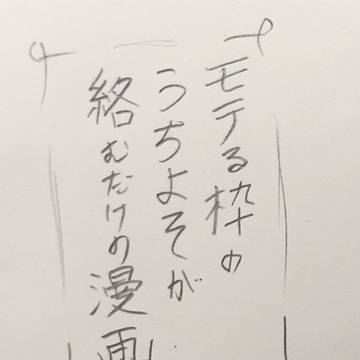 モテる枠の
うちよそが
絡むだけの漫画